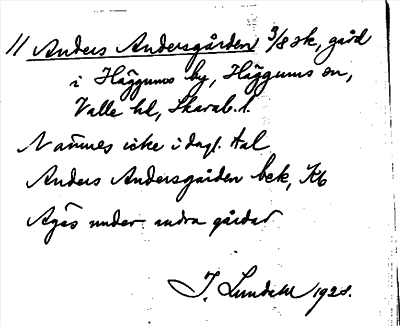 11 Anders Andersgården 3/8 mk, gård
i Häggums by, Häggums sn,
Valle hd, Skarab. l.
Namnes icke i dagl. tal
Anders Andersgården bek, Kb
Äges under andra gårdar
I. Lundahl 1928.